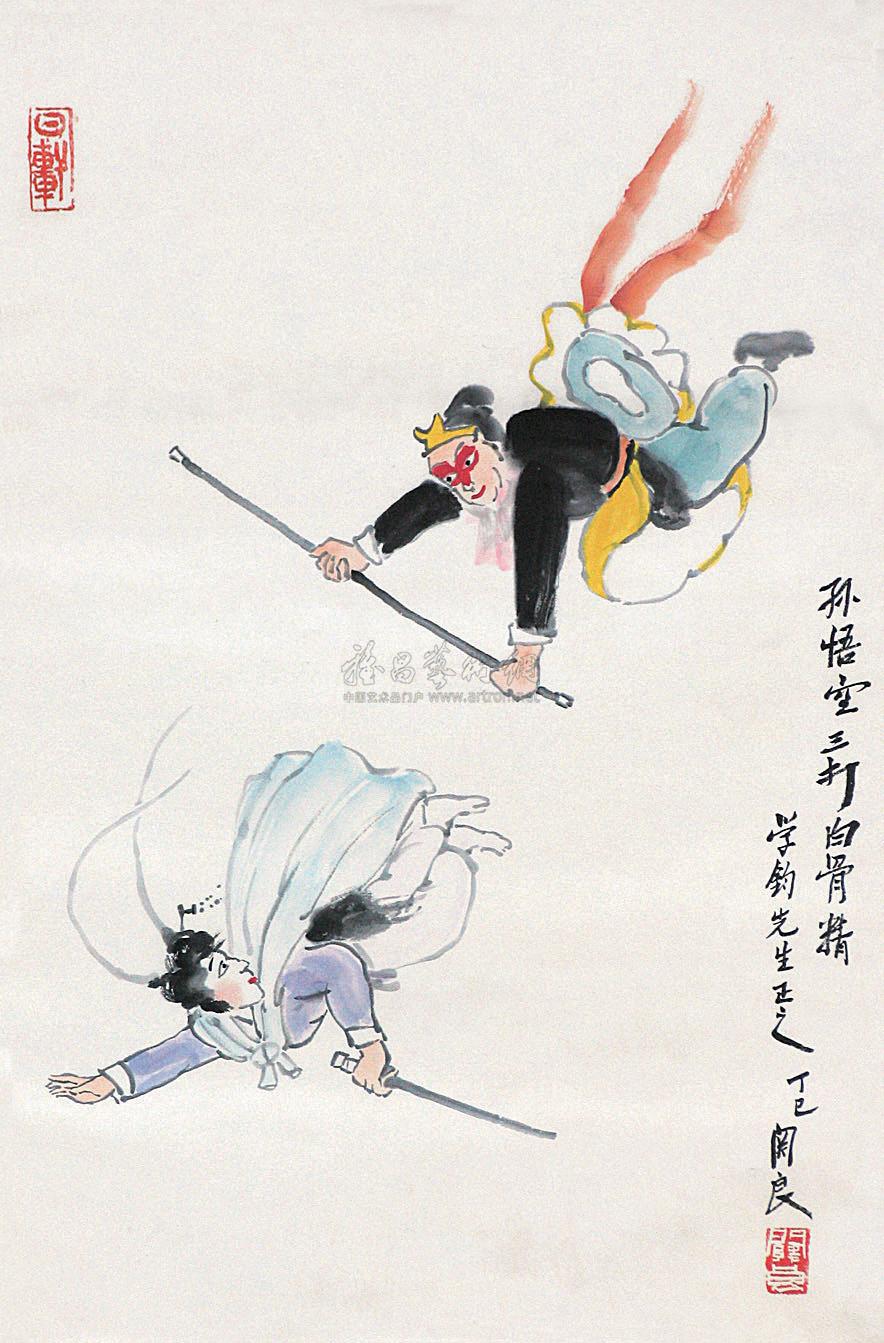 孙悟空三打白骨精
学钧先生正之
丁巳关良
中国艺术品门户 www.artron.net